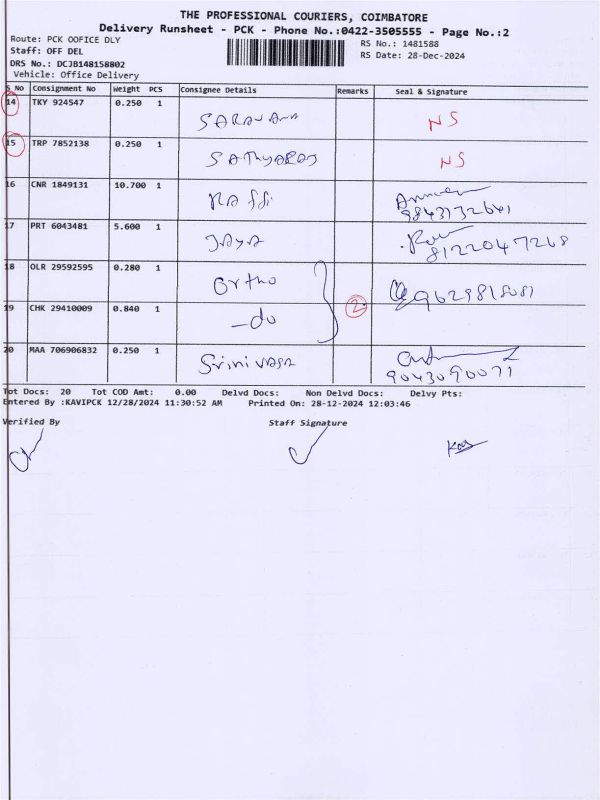 THE PROFESSIONAL COURIERS, COIMBATORE
Delivery Runsheet - PCK - Phone No.:0422-3505555 - Page No.:2
Route: PCK OOFICE DLY RS No.: 1481588
Staff: OFF DEL RS Date: 28-Dec-2024
DRS No.: DCJB148158802
Vehicle: Office Delivery
S No Consignment No Weight PCS Consignee Details Remarks Seal & Signature
14 TKY 924547 0.250 1 SARAVANA NS
15 TRP 7852138 0.250 1 SATHYARAJ NS
16 CNR 1849131 10.700 1 RAFFI 9843732641
17 PRT 6043481 5.600 1 JAYA 8122047268
18 OLR 29592595 0.280 1 Ortho
2 9629818081
19 CHK 29410009 0.840 1 -do
20 MAA 706906832 0.250 1 Srinivasa 9043090071
Tot Docs: 20 Tot COD Amt: 0.00 Delvd Docs: Non Delvd Docs: Delvy Pts:
Entered By :KAVIPCK 12/28/2024 11:30:52 AM Printed On: 28-12-2024 12:03:46
Verified By Staff Signature